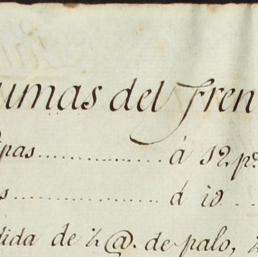 umas del Fren
pas................ á 12 p.
s................ á 10 ...
dida de ½ @. de palo,